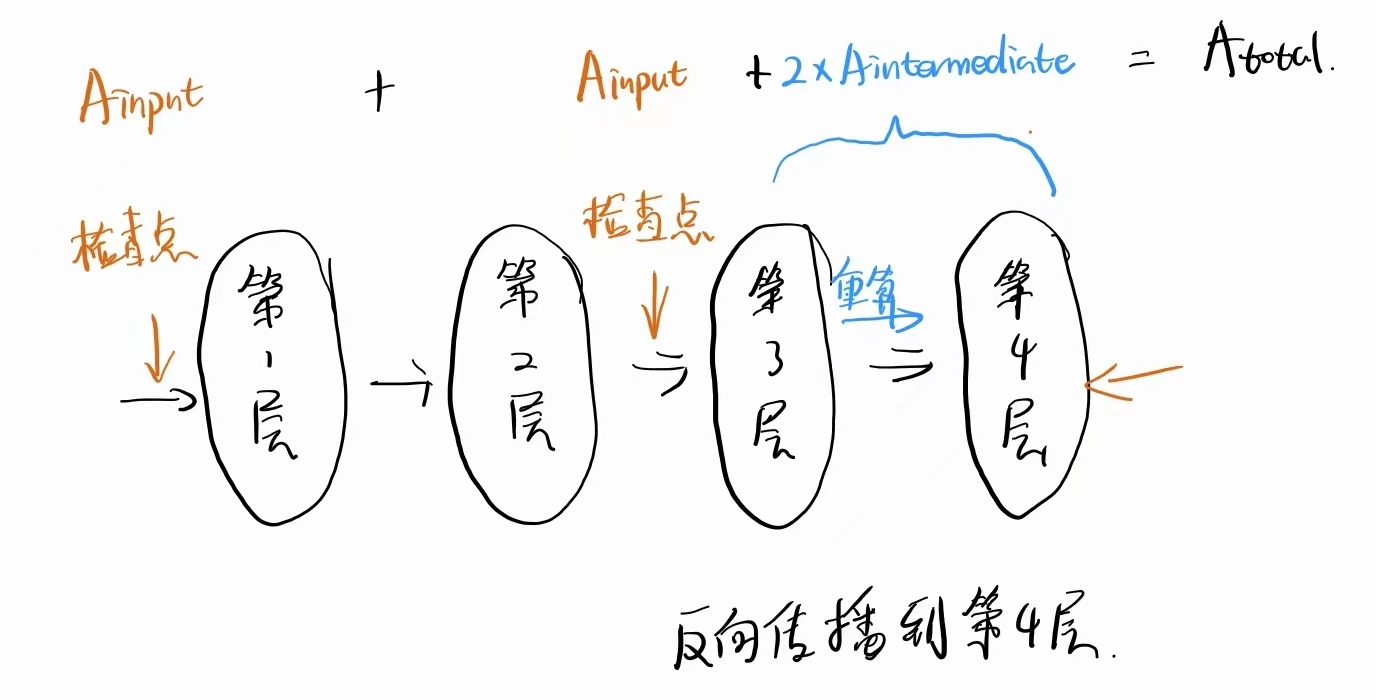 Ainput + Ainput + 2×Aintermediate = Atotal.
检查点
检查点
第1层
第2层
第3层
重算
第4层
反向传播到第4层.